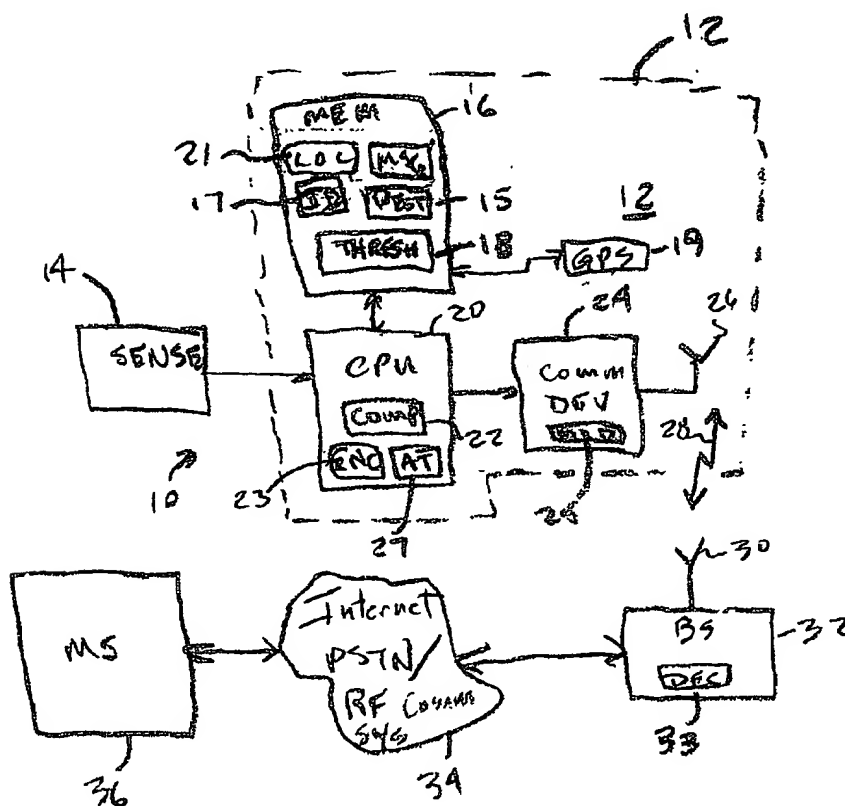 12
MEM
16
21
LOC
MSG
17
ID
DEST
15
12
THRESH
18
GPS
19
14
SENSE
20
CPU
COMP
22
ENC
AT
23
27
10
24
Comm
DEV
26
28
30
MS
36
Internet
PSTN/
RF Comm
SYS
34
BS
32
DEC
33